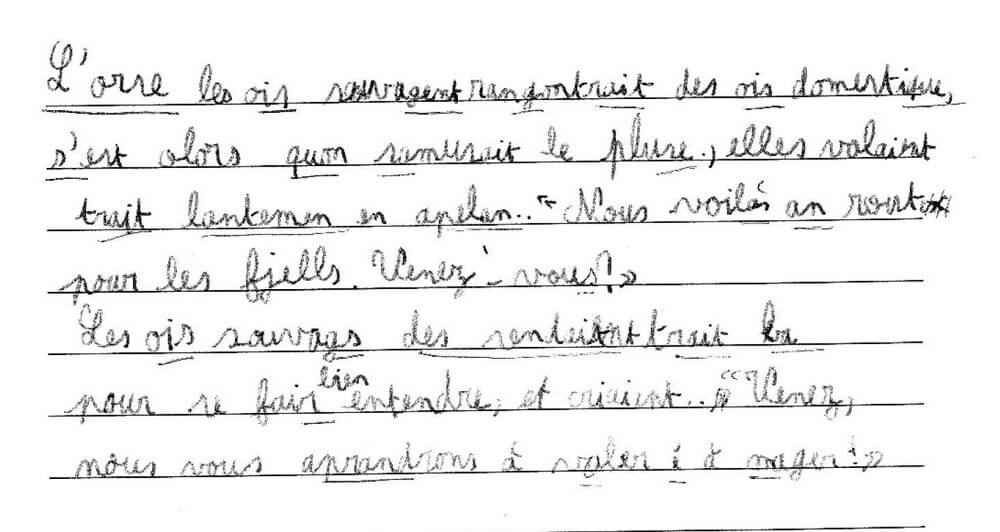 L'orre les ois sauvagent rangontrait des ois domestique,
s'est alors quon samusait le pluse, elles volaint
trait lantemen en apelan.. "Nous voilás an rout
pour les fjells. Venez-vous?»
Les ois sauvags des sendeitnt trait ba
pour se fair bien entendre, et criaient.. «Venez,
nous vous aprandrons à voler é à nager!»